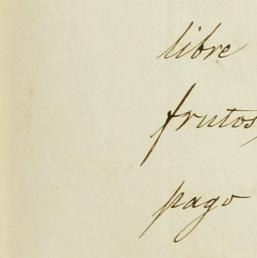 libre
frutos,
pago